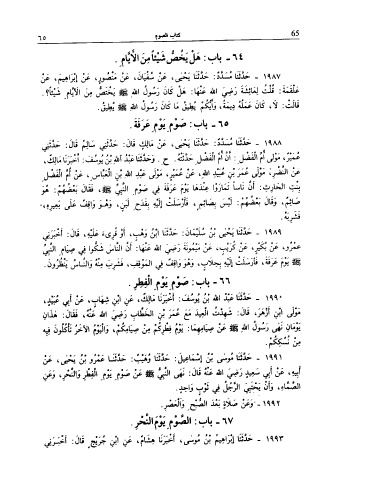 65 كتاب الصوم ٦٥
٦٤ - باب: هَلْ يَخُصُّ شَيْئاً مِنَ الأَيَّامِ.
١٩٨٧ - حَدَّثَنَا مُسَدَّدٌ: حَدَّثَنَا يَحْيَى، عَنْ سُفْيَانَ، عَنْ مَنْصُورٍ، عَنْ إِبْرَاهِيمَ، عَنْ
عَلْقَمَةَ: قُلْتُ لِعَائِشَةَ رَضِيَ اللهُ عَنْهَا: هَلْ كَانَ رَسُولُ اللهِ ﷺ يَخْتَصُّ مِنَ الأَيَّامِ شَيْئاً؟.
قَالَتْ: لَا، كَانَ عَمَلُهُ دِيمَةً، وَأَيُّكُمْ يُطِيقُ مَا كَانَ رَسُولُ اللهِ ﷺ يُطِيقُ.
٦٥ - باب: صَوْمِ يَوْمِ عَرَفَةَ.
١٩٨٨ - حَدَّثَنَا مُسَدَّدٌ: حَدَّثَنَا يَحْيَى، عَنْ مَالِكٍ قَالَ: حَدَّثَنِي سَالِمٌ قَالَ: حَدَّثَنِي
عُمَيْرٌ، مَوْلَى أُمِّ الْفَضْلِ: أَنَّ أُمَّ الْفَضْلِ حَدَّثَتْهُ. ح. وَحَدَّثَنَا عَبْدُ اللهِ بْنُ يُوسُفَ: أَخْبَرَنَا مَالِكٌ،
عَنْ أَبِي النَّضْرِ، مَوْلَى عُمَرَ بْنِ عُبَيْدِ اللهِ، عَنْ عُمَيْرٍ، مَوْلَى عَبْدِ اللهِ بْنِ الْعَبَّاسِ، عَنْ أُمِّ الْفَضْلِ
بِنْتِ الْحَارِثِ: أَنَّ نَاساً تَمَارَوْا عِنْدَهَا يَوْمَ عَرَفَةَ فِي صَوْمِ النَّبِيِّ ﷺ، فَقَالَ بَعْضُهُمْ: هُوَ
صَائِمٌ، وَقَالَ بَعْضُهُمْ: لَيْسَ بِصَائِمٍ، فَأَرْسَلَتْ إِلَيْهِ بِقَدَحِ لَبَنٍ، وَهُوَ وَاقِفٌ عَلَى بَعِيرِهِ،
فَشَرِبَهُ.
١٩٨٩ - حَدَّثَنَا يَحْيَى بْنُ سُلَيْمَانَ: حَدَّثَنَا ابْنُ وَهْبٍ، أَوْ قُرِئَ عَلَيْهِ، قَالَ: أَخْبَرَنِي
عَمْرٌو، عَنْ بُكَيْرٍ، عَنْ كُرَيْبٍ، عَنْ مَيْمُونَةَ رَضِيَ اللهُ عَنْهَا: أَنَّ النَّاسَ شَكُّوا فِي صِيَامِ النَّبِيِّ
ﷺ يَوْمَ عَرَفَةَ، فَأَرْسَلَتْ إِلَيْهِ بِحِلَابٍ، وَهُوَ وَاقِفٌ فِي الْمَوْقِفِ، فَشَرِبَ مِنْهُ وَالنَّاسُ يَنْظُرُونَ.
٦٦ - باب: صَوْمِ يَوْمِ الْفِطْرِ.
١٩٩٠ - حَدَّثَنَا عَبْدُ اللهِ بْنُ يُوسُفَ: أَخْبَرَنَا مَالِكٌ، عَنِ ابْنِ شِهَابٍ، عَنْ أَبِي عُبَيْدٍ،
مَوْلَى ابْنِ أَزْهَرَ، قَالَ: شَهِدْتُ الْعِيدَ مَعَ عُمَرَ بْنِ الْخَطَّابِ رَضِيَ اللهُ عَنْهُ، فَقَالَ: هَذَانِ
يَوْمَانِ نَهَى رَسُولُ اللهِ ﷺ عَنْ صِيَامِهِمَا: يَوْمُ فِطْرِكُمْ مِنْ صِيَامِكُمْ، وَالْيَوْمُ الآخَرُ تَأْكُلُونَ فِيهِ
مِنْ نُسُكِكُمْ.
١٩٩١ - حَدَّثَنَا مُوسَى بْنُ إِسْمَاعِيلَ: حَدَّثَنَا وُهَيْبٌ: حَدَّثَنَا عَمْرُو بْنُ يَحْيَى، عَنْ
أَبِيهِ، عَنْ أَبِي سَعِيدٍ رَضِيَ اللهُ عَنْهُ قَالَ: نَهَى النَّبِيُّ ﷺ عَنْ صَوْمِ يَوْمِ الْفِطْرِ وَالنَّحْرِ، وَعَنِ
الصَّمَّاءِ، وَأَنْ يَحْتَبِيَ الرَّجُلُ فِي ثَوْبٍ وَاحِدٍ.
١٩٩٢ - وَعَنْ صَلَاةٍ بَعْدَ الصُّبْحِ وَالْعَصْرِ.
٦٧ - باب: الصَّوْمِ يَوْمَ النَّحْرِ.
١٩٩٣ - حَدَّثَنَا إِبْرَاهِيمُ بْنُ مُوسَى، أَخْبَرَنَا هِشَامٌ، عَنِ ابْنِ جُرَيْجٍ قَالَ: أَخْبَرَنِي